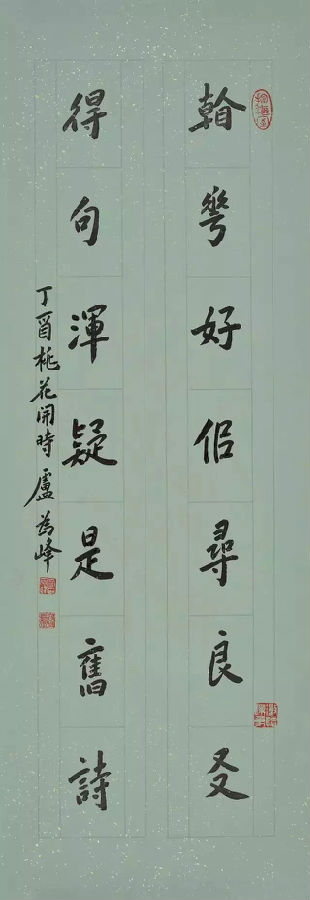 看𠌶好佀尋良㕛
得句渾疑是舊詩
丁酉桃花開時盧為峰